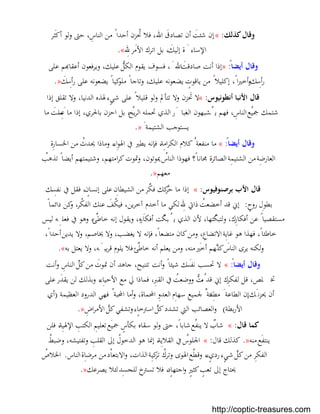 وقال كذلك: «إن شئتَ أن تصادقَ الله، فلا تُحزِن أحداً من الناسِ، حتى ولو أكثر
الإساءَ إليكَ، بل اترك الأمرَ للهِ».
وقال أيضاً: «إذا أنت صادقتَ اللهَ، فسوف يقوم الكلُّ عليك، ويرفعون أعقابهم على
رأسك وأخيراً، إكليلاً من ياقوتٍ يضعونه عليك، وتاجاً ملوكياً يضعونه على رأسك».
قال الأنبا أنطونيوس: «لا تحزن ولا تتألم ولو قليلاً على شيءٍ لهذه الدنيا، ولا تقلق إذا
شتمك جميعُ الناسِ، فهم يشبهون الغبارَ الذي تحمله الريحُ، بل احزن بالحري، إذا ما عملتَ ما
يستوجب الشتيمةَ».
وقال أيضاً: «ما منفعةُ كلامِ الكرامةِ فإنه يطير في الهواءِ وماذا يحدثُ من الخسارةِ
العارضةِ من الشتيمةِ الصائرةِ مجاناً؟ فهوذا الناسُ يموتون، وتموت كرامتهم، وشتيمتهم أيضاً تذهبُ
معهم».
قال الأب برصنوفيوس: «إذا ما حرَّكك فكرٌ من الشيطانِ على إنسانٍ فقل في نفسك
بطولِ روحٍ: إني قد أخضعتُ ذاتي للهِ لكي ما أخدم آخرين، فيكفَّ عنك الفكرُ، وكن دائماً
مستقصياً عن أفكارِك، ولتبكتها، لأن الذي يبكِّت أفكارَه، ويقول إنه خاطئٌ وهو في فعله ليس
خاطئاً، فهذا هو غايةُ الاتضاعِ، ومن كان متضعاً، فإنه لا يغضب، ولا يخاصم، ولا يدين أحداً،
ولكنه يرى الناسَ كلَّهم أخيرَ منه، ومن يعلم أنه خاطئٌ فلا يلوم قريبَه، ولا يعتل به».
وقال أيضاً: «لا تحسب نفسك شيئاً وأنت تتنيح، جاهد أن تموتَ من كلِّ الناسِ وأنت
تخلص، قل لفكرِك إني قد متُّ ووضعتُ في القبرِ، فماذا لي مع الأحياءِ وبذلك لن يقدر على
أن يحزنَك إن الطاعةَ مطفئةٌ لجميعِ سهامِ العدو المحماة، وأما المحبةُ فهي الدرودُ العظيمة (أي
الأربطة) والعصائب التي تشدد كلَّ استرخاءٍ وتشفي كلَّ الأمراضِ».
كما قال: «شابٌ لا ينفع شاباً، حتى ولو سقاه بكأسٍ جميعَ تعليمِ الكتبِ الإلهيةِ فلن
ينتفع منه». كذلك قال: «الجلوسُ في القلايةِ إنما هو الدخولُ إلى القلبِ وتفتيشه، وضبطُ
الفكرِ من كلِّ شيءٍ رديءٍ وقطعُ الهوى وتركُ تزكيةِ الذات، والابتعادُ من مرضاةِ الناسِ. الخلاصُ
يحتاج إلى تعبٍ كثيرٍ واجتهادٍ فلا تسترخِ للجسدِ لئلا يصرعك».
http://coptic-treasures.com